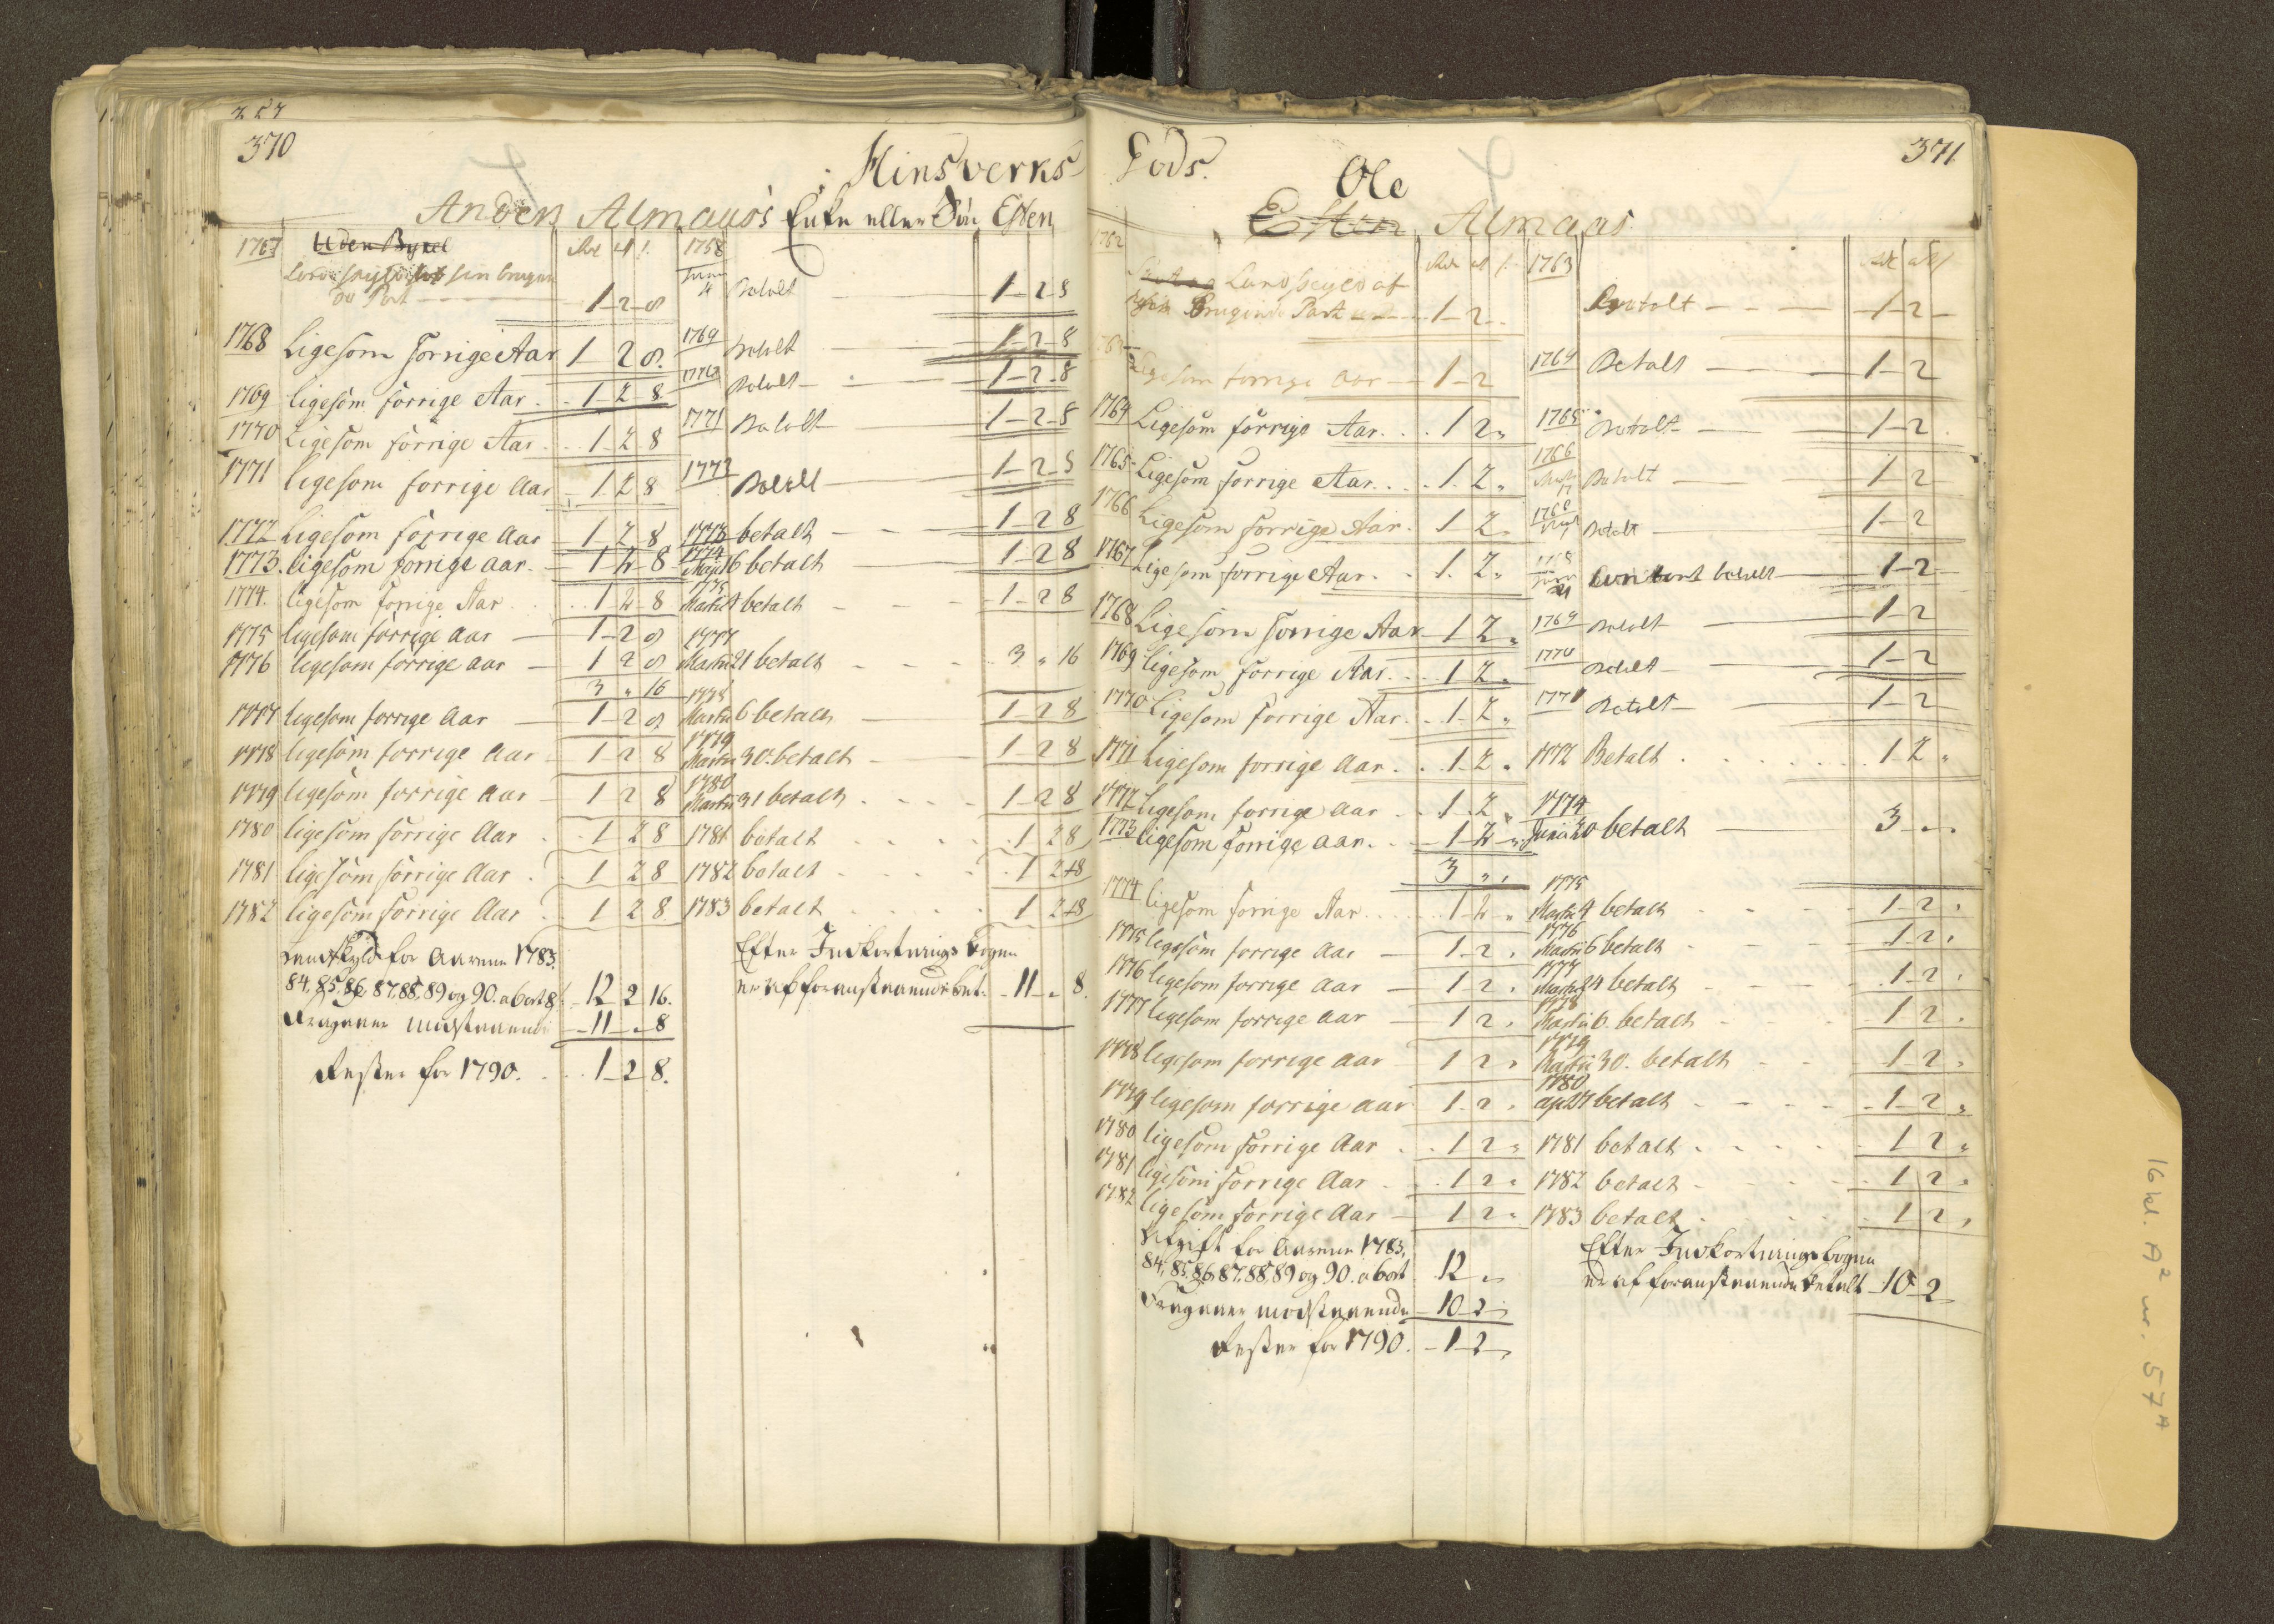 370
Hinsverks
Anden Almaas's Enke eller Sön Esten
1767 Uden Byxel
sin brugende Part 1-2-8
1768 Ligesom forrige Aar 1 2 8.
1769 ligesom forrige Aar 1-2-8
1770 Ligesom forrige Aar 1-2 8
1771 ligesom forrige Aar 1 2 8
1772 ligesom forrige Aar 1 2 8
1773. ligesom forrige aar. 1 2 8
1774. ligesom forrige Aar 1-2-8
1775 ligesom forrige Aar 1-2 8
1776 ligesom forrige Aar 1 2 8
3 " 16
1777 ligesom forrige Aar 1-2 8
1778 ligesom forrige Aar 1-2 8
1779 ligesom forrige Aar 1 2 8
1780 ligesom forrige Aar 1 2 8
1781 ligesom forrige Aar 1 2 8
1782 ligesom forrige Aar 1 2 8
Landskyld for Aarene 1783.
84, 85, 86, 87, 88, 89 og 90. a 1 ort 8 12 2 16.
Fragaaer modstaaende 11 " 8
Rester for 1790. 1-2 8.
1768
Betalt 1-2 8
1769 Betalt 1-2-8
1770 Betalt 1-2-8
1771 Betalt 1-2-8
1772 Betalt 1-2-8
1773 betalt 1-2 8
1774
Maji 16 betalt 1-2 8
1775
Martii 4 betalt 1-2 8
1777
Martii 21 betalt 3 " 16
1778
Martii 6 betalt 1-2 8
1779
Martii 30. betalt 1-2 8
1780
Martii 31 betalt 1-2 8
1781 betalt 1 2 8
1782 betalt 1 2 8
1783 betalt 1 2 8
Efter Indkortnings bogen
er af foranstaaende bet. 11 " 8.
371
Gods.
Ole
Esten Almaas
1762
Landskyld af
sin Brugende Part 1-2
1763 Ligesom forrige Aar 1-2
1764 Ligesom forrige Aar. 1 2 "
1765 Ligesom forrige Aar. 1. 2. "
1766 Ligesom forrige Aar. 1 2. "
1767 Ligesom forrige Aar. 1. 2. "
1768 Ligesom forrige Aar 1 2. "
1769 ligesom forrige Aar. 1 2. "
1770 Ligesom forrige Aar. 1-2. "
1771 Ligesom forrige Aar. 1-2. "
1772 Ligesom forrige Aar 1-2. "
1773 ligesom forrige aar. 1-2 "
3 " "
1774 ligesom forrige Aar 1-2 "
1775 ligesom forrige Aar 1-2 "
1776 ligesom forrige Aar 1 2 "
1777 ligesom forrige Aar 1 2 "
1778 ligesom forrige Aar 1 2 "
1779 ligesom forrige Aar 1-2 "
1780 ligesom forrige Aar 1 2 "
1781 ligesom forrige Aar 1 2 "
1782 ligesom forrige Aar 1 2 "
Afgift for Aarene 1783,
84, 85, 86, 87, 88, 89 og 90. a 1 ort 12 "
Fragaaer modstaaende 10-2 "
Rester for 1790. 1-2 "
1763
Betalt 1-2
1764 Betalt 1-2
1765 Betalt 1-2
1766
Betalt 1-2
Betalt 1-2
1768
Contant betalt 1-2
1769 Betalt 1-2
1770 Betalt 1-2
1771 Betalt 1-2
1772 Betalt 1 2 "
1774
Junii 20 betalt 3 " "
1775
Martii 4 betalt 1-2 "
1776
Martii 6 betalt 1-2 "
1777
Martii 24 betalt 1-2 "
1778
Martii 6. betalt 1 2 "
1779
Martii 30. betalt 1 2 "
1780
apr 27 betalt 1-2 "
1781 betalt 1 2 "
1782 betalt 1 2 "
1783 betalt 1 2 "
Efter Indkortnings bogen
er af foranstaaende betalt 10-2